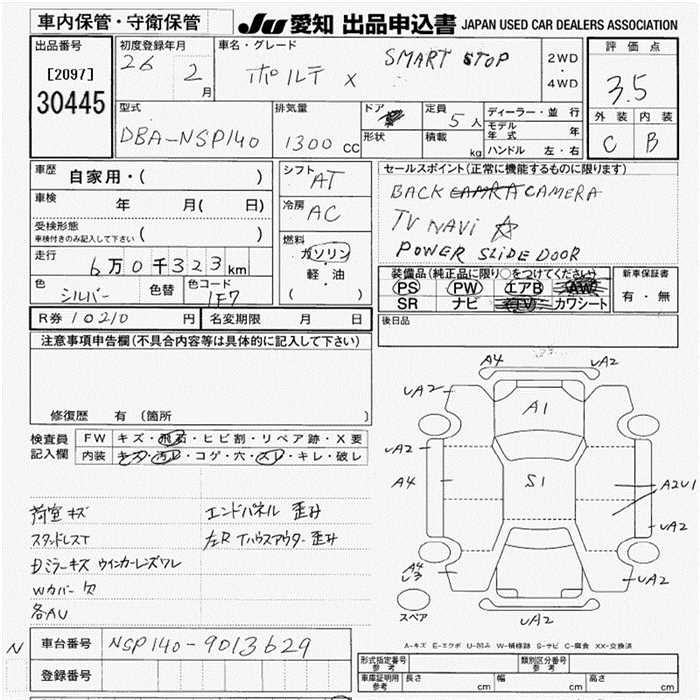 車内保管・守衛保管
JU 愛知 出品申込書 JAPAN USED CAR DEALERS ASSOCIATION
出品番号
[2097]
30445
初度登録年月
26 2 月
車名・グレード
ポルテ x SMART STOP
2WD
・
4WD
評価点
3.5
外装 内装
C B
型式
DBA-NSP140
排気量
1300 cc
ドア
形状
定員
5人
積載
kg
ディーラー・並行
モデル年式 年
ハンドル 左・右
車歴
自家用・( )
車検
年 月( 日)
受検形態
車検付きのみ記入して下さい
( )
走行
6万0千323km
色
シルバー
色替
色コード
1F7
シフト
AT
冷房
AC
燃料
ガソリン
軽・油
( )
セールスポイント(正常に機能するものに限ります)
BACK CAMERA
TV NAVI ☆
POWER SLIDE DOOR
装備品(純正品に限り○をつけてください)
PS PW エアB AW
SR ナビ TV カワシート
新車保証書
有・無
後日品
R券 10210 円
名変期限 月 日
注意事項申告欄(不具合内容等は具体的に記入して下さい)
修復歴 有 (箇所 )
検査員
記入欄
FW キズ・飛石・ヒビ割・リペア跡・X要
内装 キズ・汚レ・コゲ・穴・スレ・キレ・破レ
荷室キズ
エンドパネル 歪み
スタッドレスT
左R Tハウスアウター歪み
Dミラーキズ ウインカーレンズワレ
Wカバー欠
各AU
N
車台番号
NSP140-9013629
登録番号
A4 UA2
UA2 UA2
A1
UA2
A4
S1
A2U1
UA2
A4
U3
UA2
UA2
スペア
A-キズ E-エクボ U-凹み W-補修跡 S-サビ C-腐食 XX-交換済
形式指定番号
参考
類別区分番号
参考
車庫証明用
参考
長さ cm 幅 cm 高さ cm